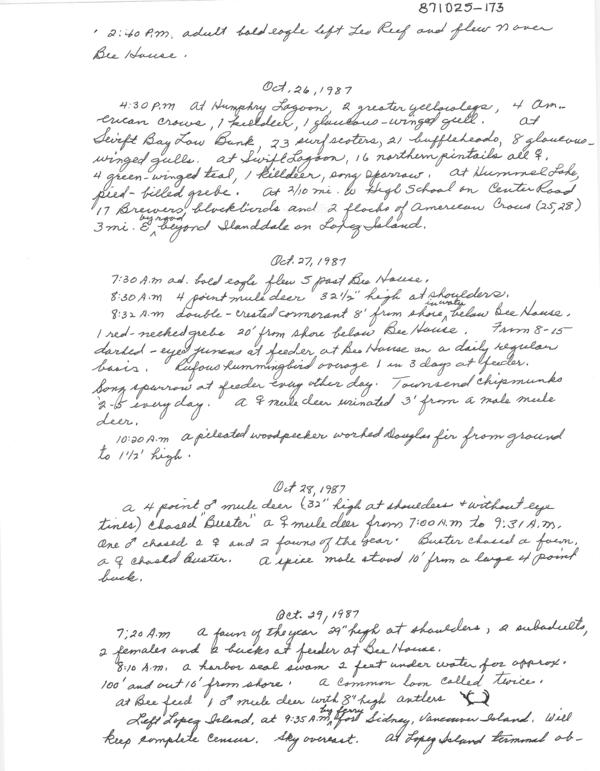 871025-173
2:40 P.M. adult bald eagle left Leo Reef and flew N over
Bee House.
Oct. 26, 1987
4:30 P.M at Humphry Lagoon, 2 greater yellowlegs, 4 Am-
erican crows, 1 killdeer, 1 glaucous-winged gull. at
Swift Bay Low Bank, 23 surf scoters, 21 buffleheads, 8 glaucous-
winged gulls. at Swift Lagoon, 16 northern pintails all ♀,
4 green-winged teal, 1 killdeer, song sparrow. at Hummel Lake,
pied-billed grebe. at 2/10 mi. W High School on Center Road
17 Brewers blackbirds and 2 flocks of American Crows (25,28)
3 mi. E by road beyond Islanddale on Lopez Island.
Oct. 27, 1987
7:30 A.M ad. bald eagle flew S past Bee House.
8:30 A.M 4 point mule deer 32 1/2" high at shoulders.
8:32 A.M double-crested cormorant 8' from shore in water below Bee House.
1 red-necked grebe 20' from shore below Bee House. From 8-15
darked-eyed juncos at feeder at Bee House on a daily regular
basis. Rufous hummingbird average 1 in 3 days at feeder.
Song sparrow at feeder every other day. Townsend chipmunks
2-5 every day. a ♀ mule deer urinated 3' from a male mule
deer.
10:20 A.M a pileated woodpecker worked Douglas fir from ground
to 1 1/2' high.
Oct 28, 1987
a 4 point ♂ mule deer (32" high at shoulders + without eye
tines) chased "Buster" a ♀ mule deer from 7:00 A.M to 9:31 A.M.
One ♂ chased 2 ♀ and 2 fawns of the year. Buster chased a fawn.
a ♀ chased Buster. a spice male stood 10' from a large 4 point
buck.
Oct. 29, 1987
7:20 A.M a fawn of the year 29" high at shoulders, 2 subadults,
2 females and 2 bucks at feeder at Bee House.
8:10 A.M. a harbor seal swam 2 feet under water for approx.
100' and out 16' from shore. a common loon called twice.
at Bee feed 1 ♂ mule deer with 8" high antlers
Left Lopez Island, at 9:35 A.M, by ferry for Sidney, Vancouver Island. Will
keep complete census. Sky overcast. At Lopez Island terminal ob-